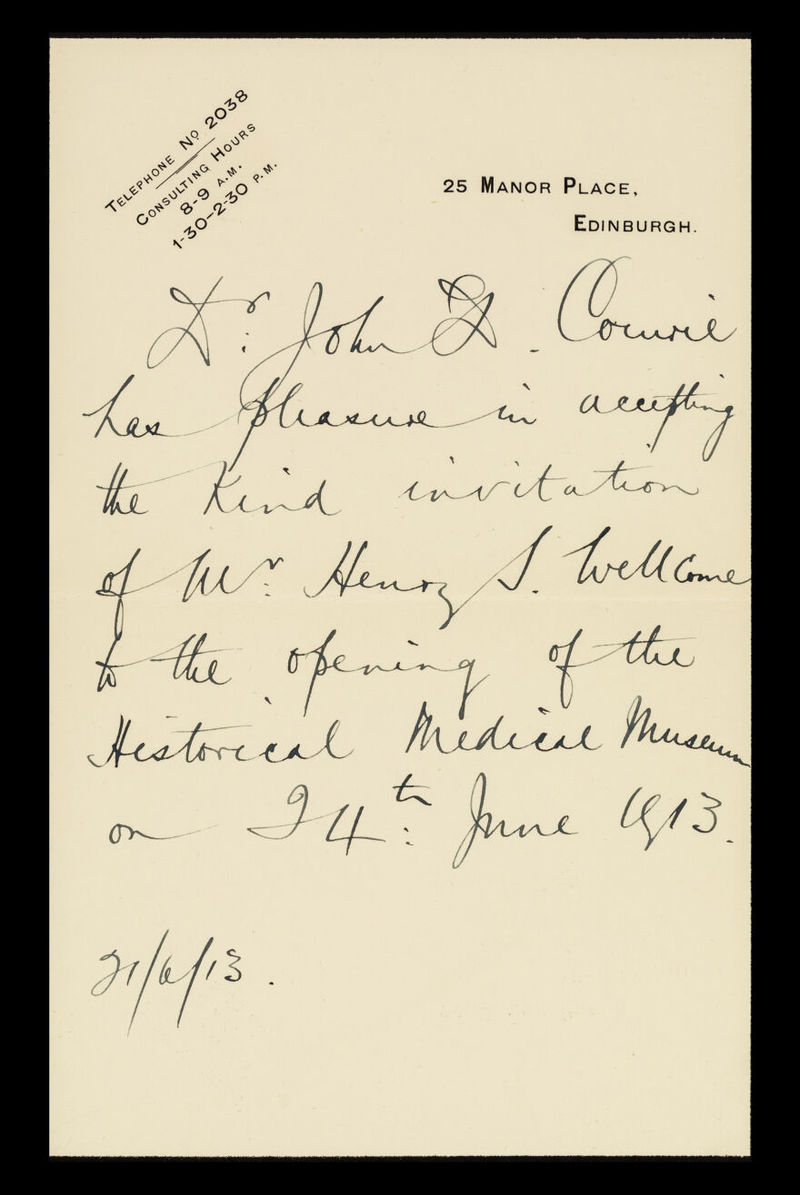 TELEPHONE No 2038
CONSULTING HOURS
8-9 A.M.
1-30-2-30 P.M.
25 MANOR PLACE,
EDINBURGH.
Dr. John D. Comrie
has pleasure in accepting
the kind invitation
of Mr. Henry S. Wellcome
to the opening of the
Historical Medical Museum
on 24th. June 1913.
21/6/13.